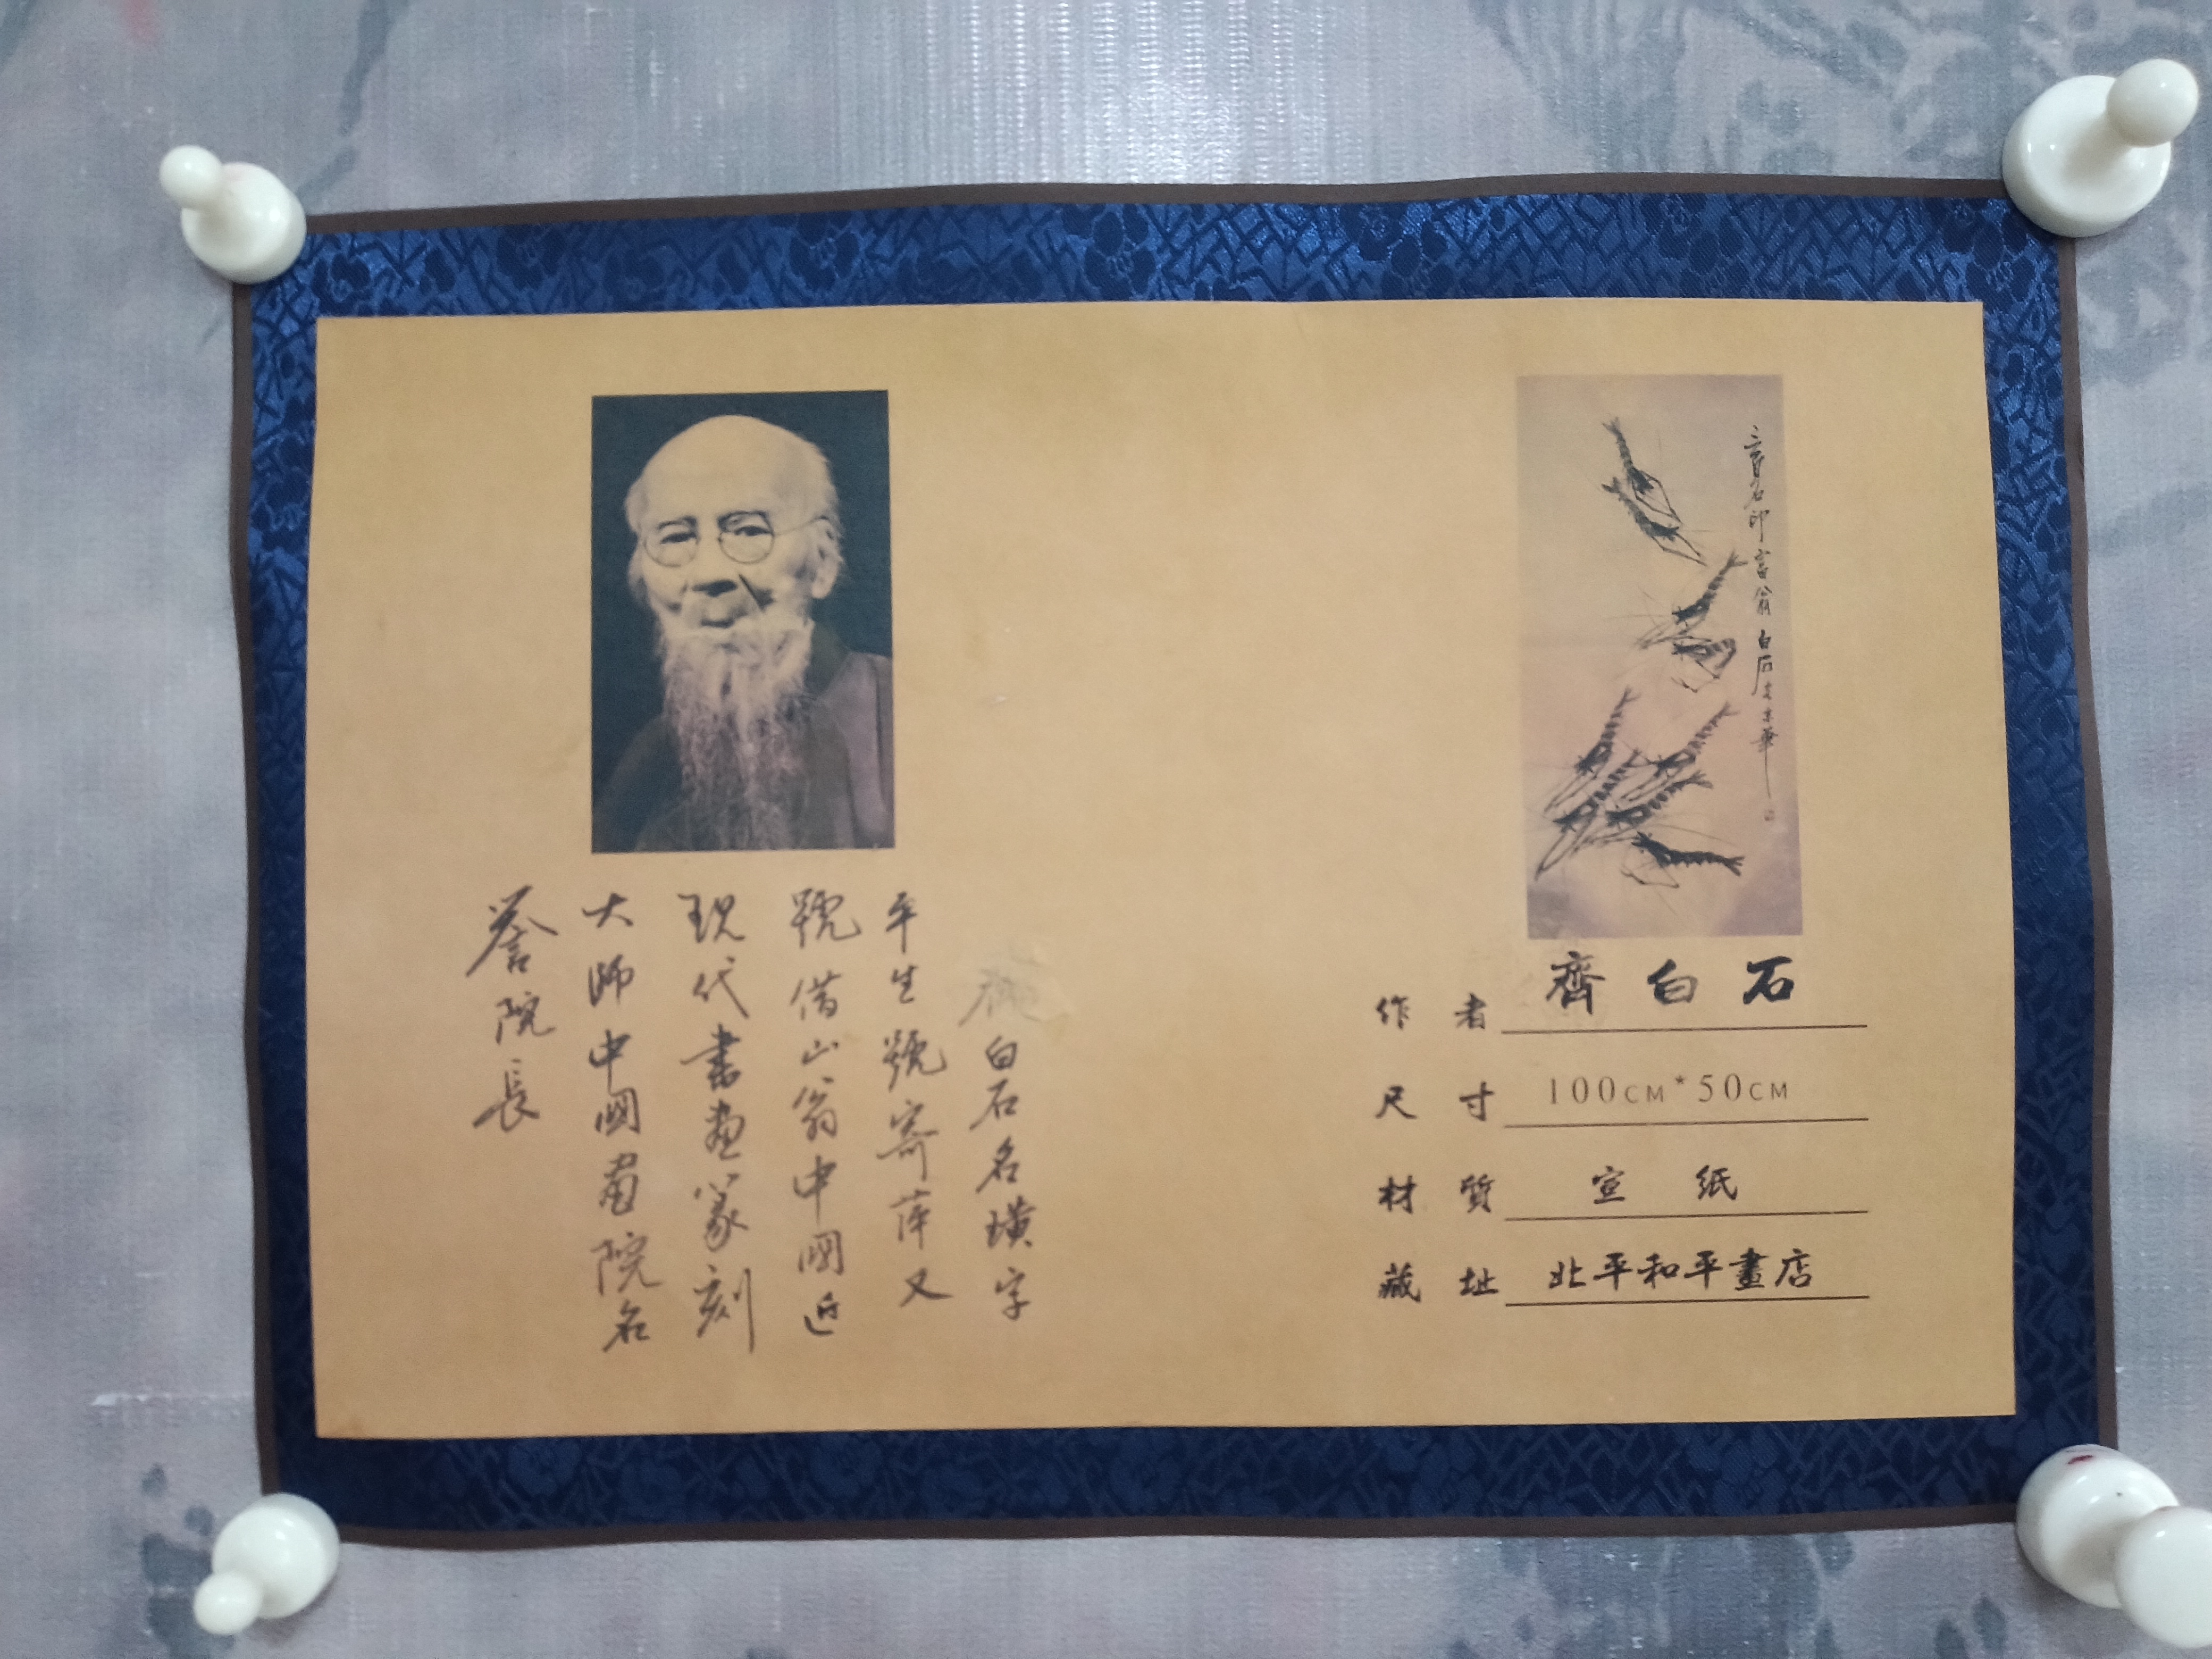 三百石印富翁白石京華
作者 齊白石
尺寸 100CM*50CM
材質 宣紙
藏址 北平和平畫店
白石名璜字
平生號寄萍又
號借山翁中國近
現代書画篆刻
大師中國畫院名
誉院長